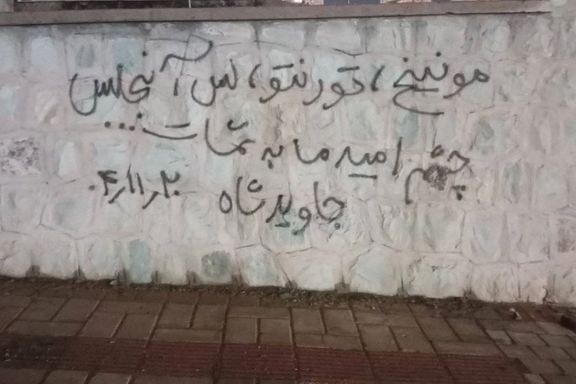 مونیخ، تورنتو، لس آنجلس
چشم امید ما به شماست...
جاوید شاه ۲۰ر۱۱ر۴۰